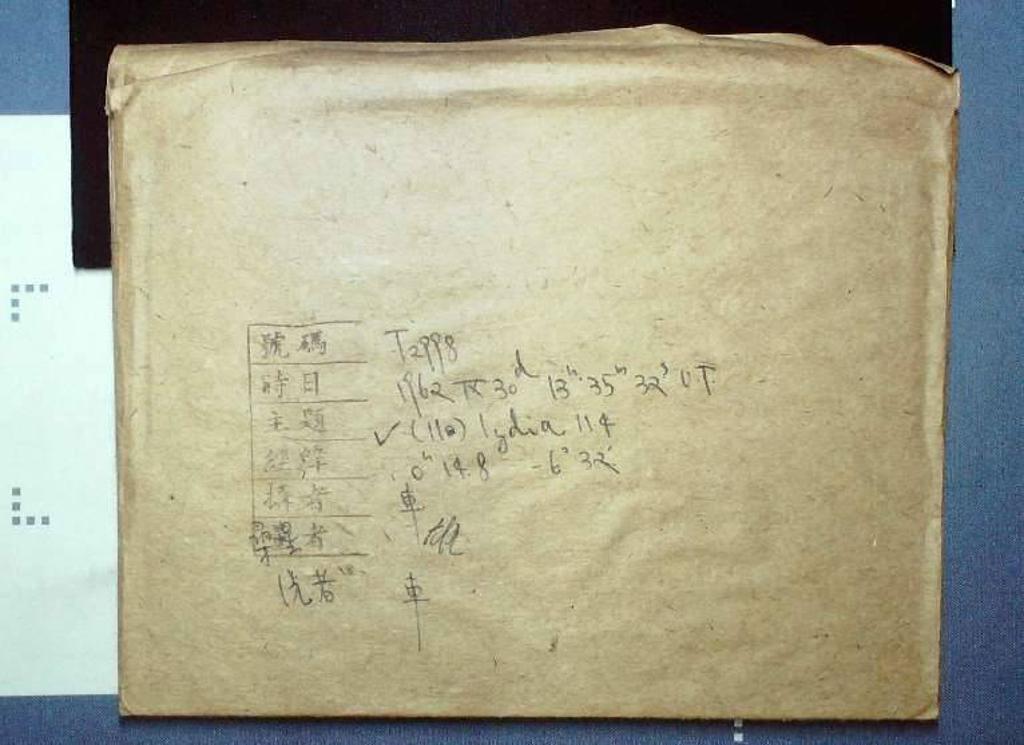 號碼 T2998
時日 1962 IX 30d 13h 35m 32s UT
主題 ✓(110) lydia 114
經緯 0h 14.8 -6° 32'
攝者 車
者 雄
洗者 車